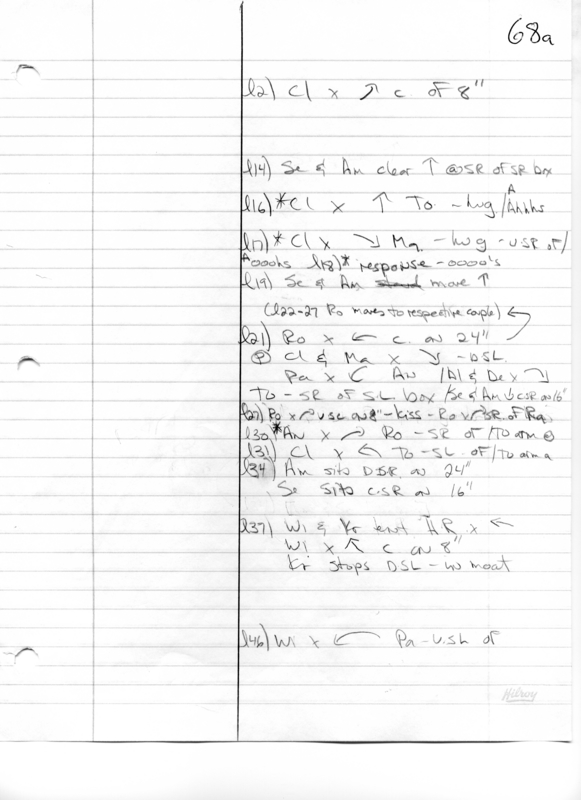 68a
l2) Cl x ↗ c. of 8"
l14) Se & Am clear ↑ @SR of SR box
l16) *Cl x ↑ To - hug / Ahhhs
l17) *Cl x ↘ Ma - hug - USR of /
Aooohs l18)* response - oooo's
l19) Se & Am move ↑
(l22-27 Ro moves to respective couple) ↵
l21) Ro x ← c. on 24"
Ⓟ Cl & Ma x ↘ - DSL
Pa x An / Al & De x ↘
To - SR of SL box / Se & Am ↓ CSR on 16"
l27) Ro x USC on 8" - kiss - Ro SR of Ra
l30) *An x Ro - SR of / To arm
l31) Cl x To - SL of / To arm
l34) Am sits DSR on 24"
Se sits CSR on 16"
l37) Wi & Kr ent HR x ←
Wi x ↖ c on 8"
Kr stops DSL - in moat
l46) Wi x ← Pa - USL of
Hilroy